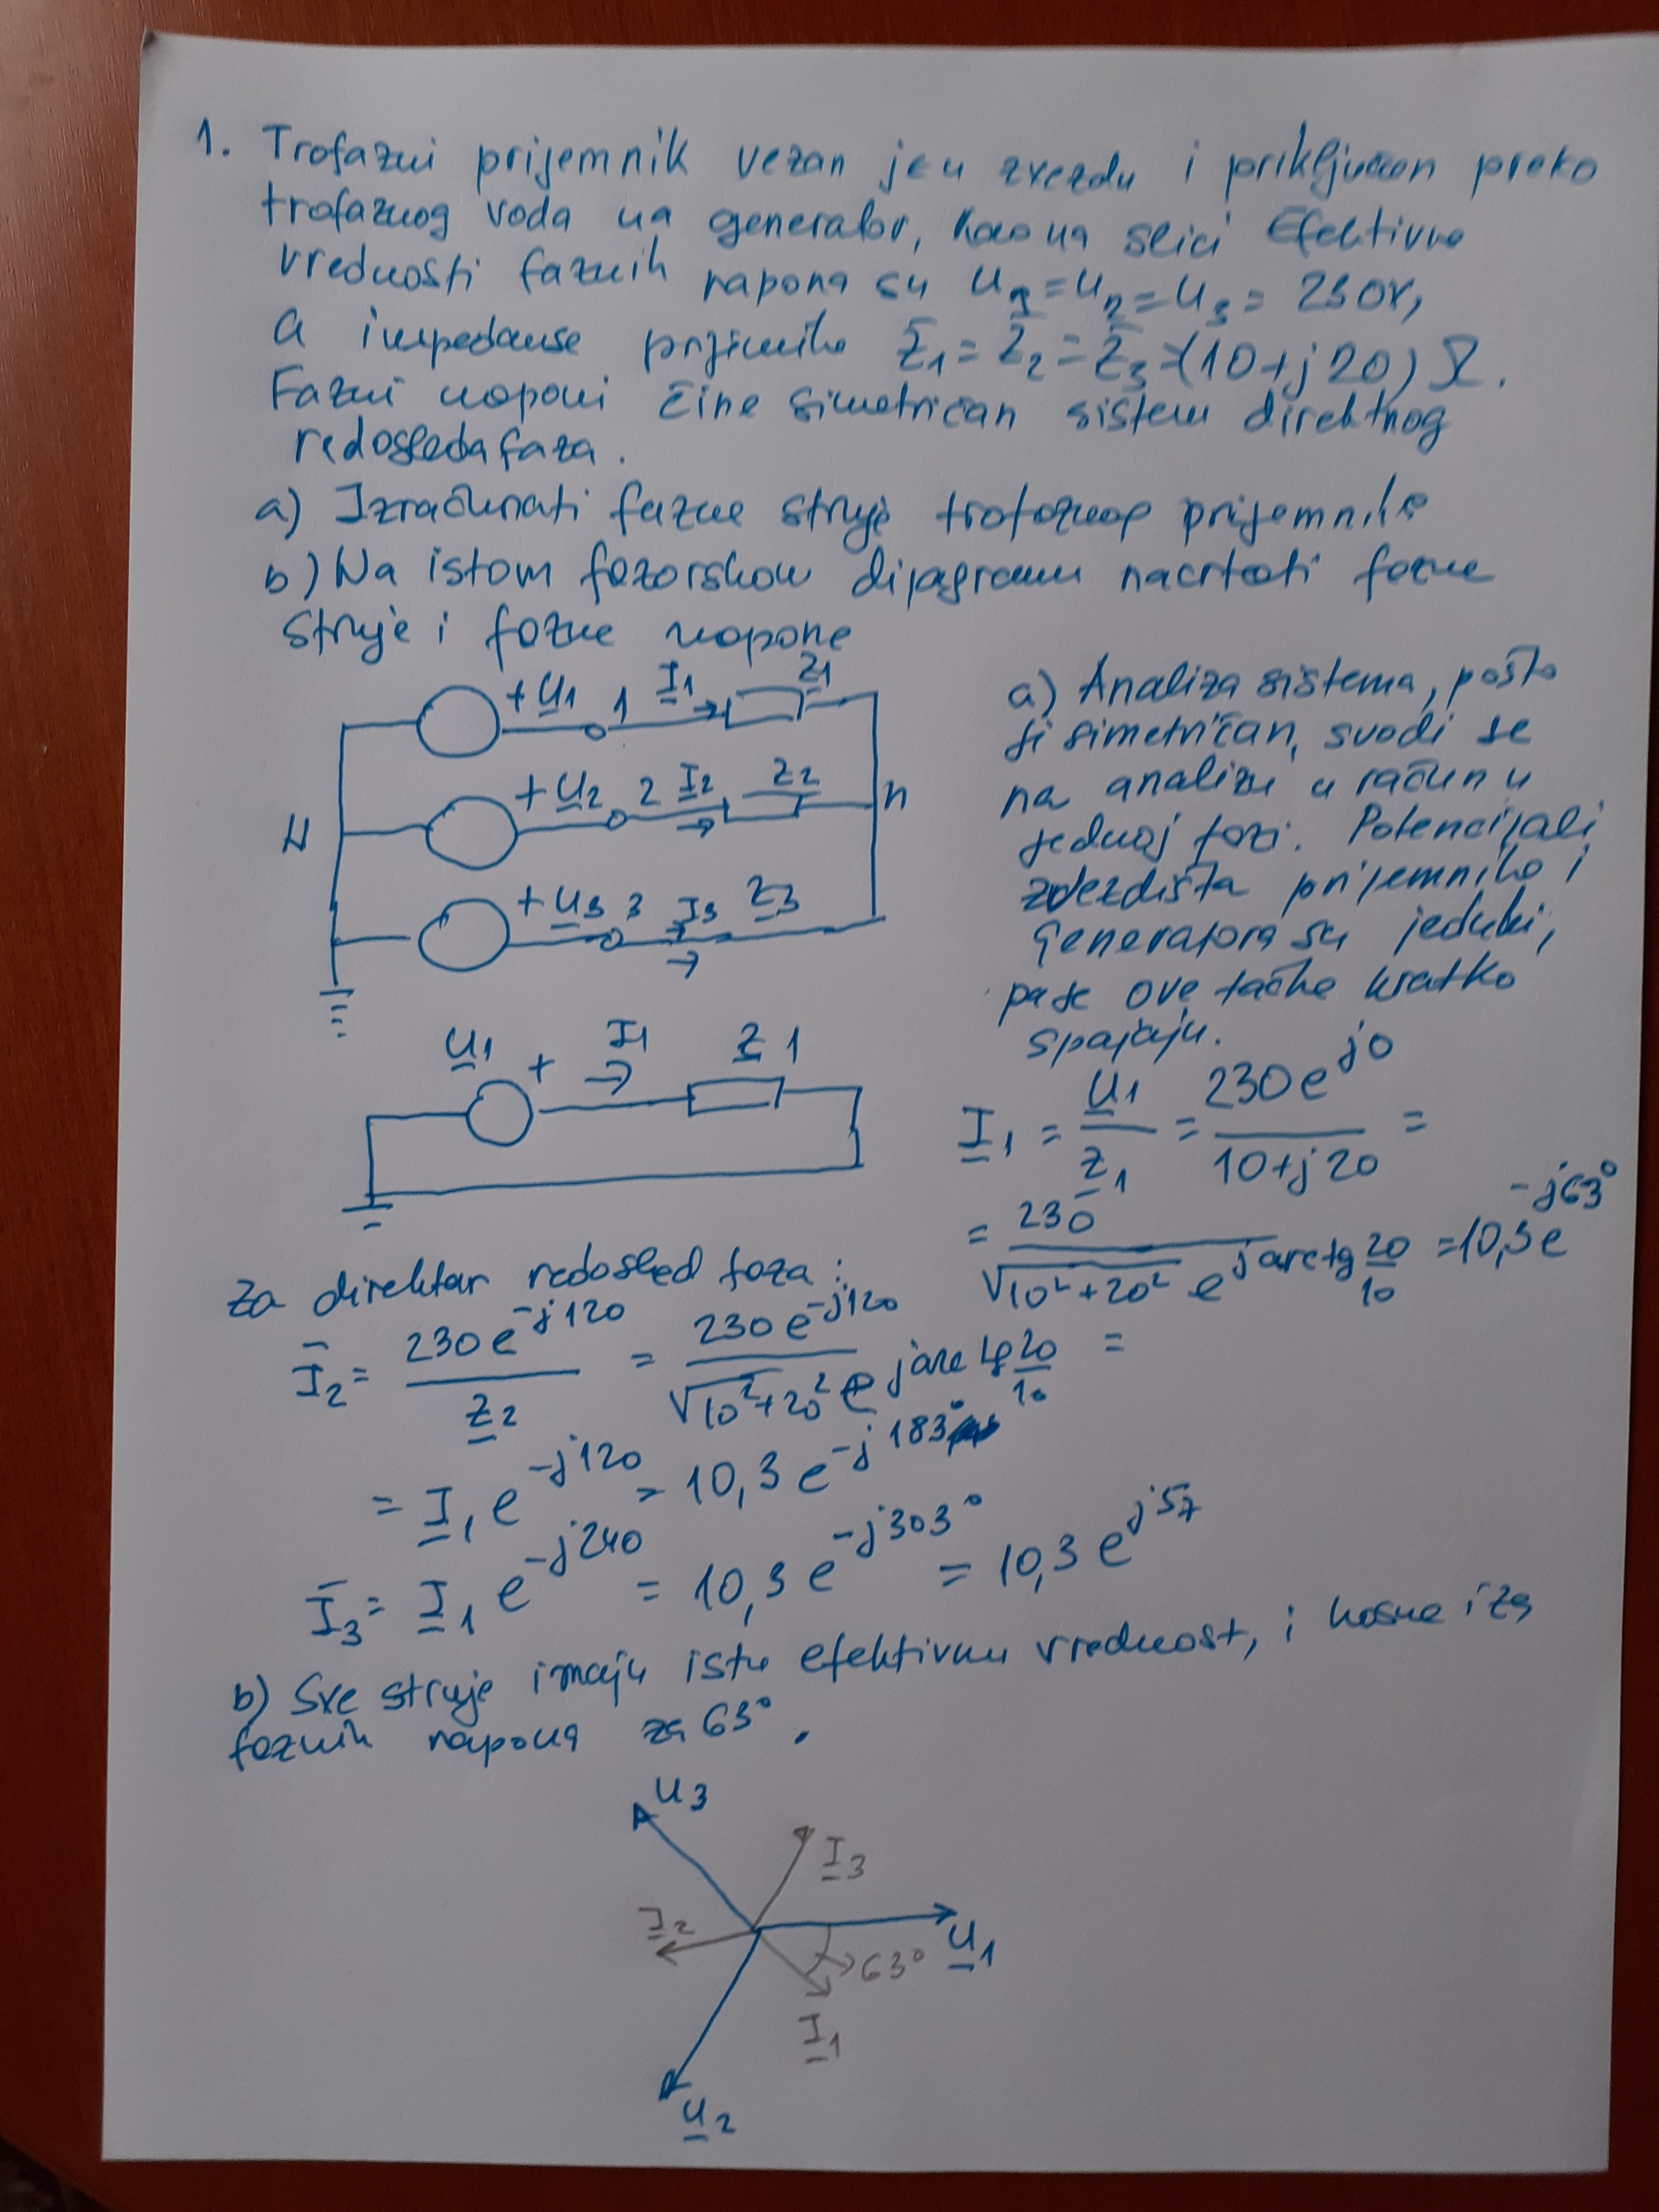 1. Trofazni prijemnik vezan je u zvezdu i priključen preko
trofaznog voda na generator, kao na slici Efektivne
vrednosti faznih napona su U1 = U2 = U3 = 230V,
a impedanse prijemnika Z1 = Z2 = Z3 = (10+j20) Ω.
Fazni naponi čine simetričan sistem direktnog
redosleda faza.
a) Izračunati fazne struje trofaznog prijemnika
b) Na istom fazorskom dijagramu nacrtati fazne
struje i fazne napone
+ U1 1 I1 Z1
+ U2 2 I2 Z2
N n
+ U3 3 I3 Z3
U1 + I1 Z1
a) Analiza sistema, pošto
je simetričan, svodi se
na analizu u računu
jednoj fazi. Potencijali
zvezdišta prijemnika i
generatora su jednaki,
pa se ove tačke kratko
spajaju.
I1 = U1/Z1 = 230e^j0/(10+j20) =
= 230/(√(10²+20²) e^(j arctg 20/10)) = 10,3e^-j63°
Za direktan redosled faza:
I2 = 230e^-j120/Z2 = 230e^-j120/(√(10²+20²) e^(j arctg 20/10)) =
= I1 e^-j120 = 10,3 e^-j183°
I3 = I1 e^-j240 = 10,3 e^-j303° = 10,3 e^j57
b) Sve struje imaju istu efektivnu vrednost, i kasne iza
faznih napona za 63°.
U3
I3
I2
U1
63°
I1
U2